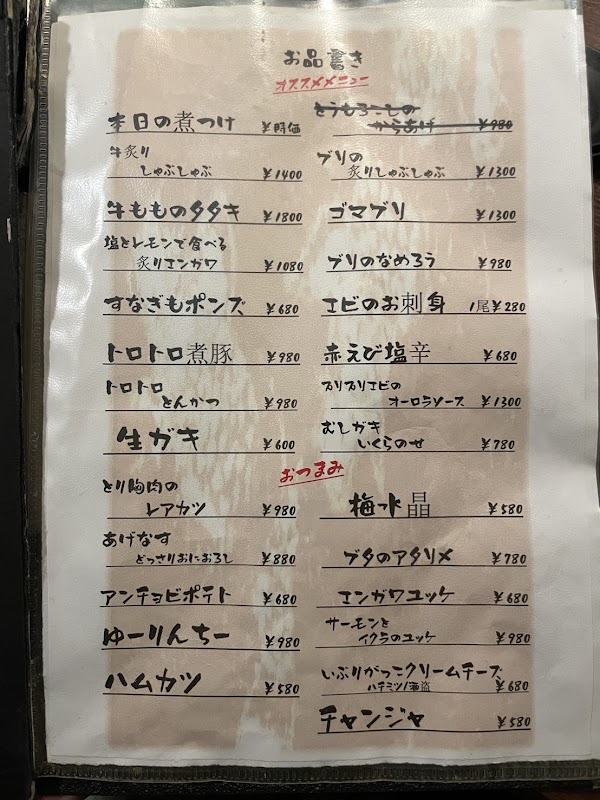 お品書き
オススメメニュー
本日の煮つけ ￥時価
牛炙り
しゃぶしゃぶ ￥1400
牛もものタタキ ￥1800
塩とレモンで食べる
炙りエンガワ ￥1080
すなぎもポンズ ￥680
トロトロ煮豚 ￥980
トロトロ
とんかつ ￥980
生ガキ ￥600
とうもろこしの
からあげ ￥980
ブリの
炙りしゃぶしゃぶ ￥1300
ゴマブリ ￥1300
ブリのなめろう ￥980
エビのお刺身 1尾￥280
赤えび塩辛 ￥680
プリプリエビの
オーロラソース ￥1300
むしガキ
いくらのせ ￥780
おつまみ
とり胸肉の
レアカツ ￥980
あげなす
どっさりおにおろし ￥880
アンチョビポテト ￥680
ゆーりんちー ￥980
ハムカツ ￥580
梅水晶 ￥580
ブタのアタリメ ￥780
エンガワユッケ ￥680
サーモンと
イクラのユッケ ￥980
いぶりがっこクリームチーズ
ハチミツ/酒盗 ￥680
チャンジャ ￥580